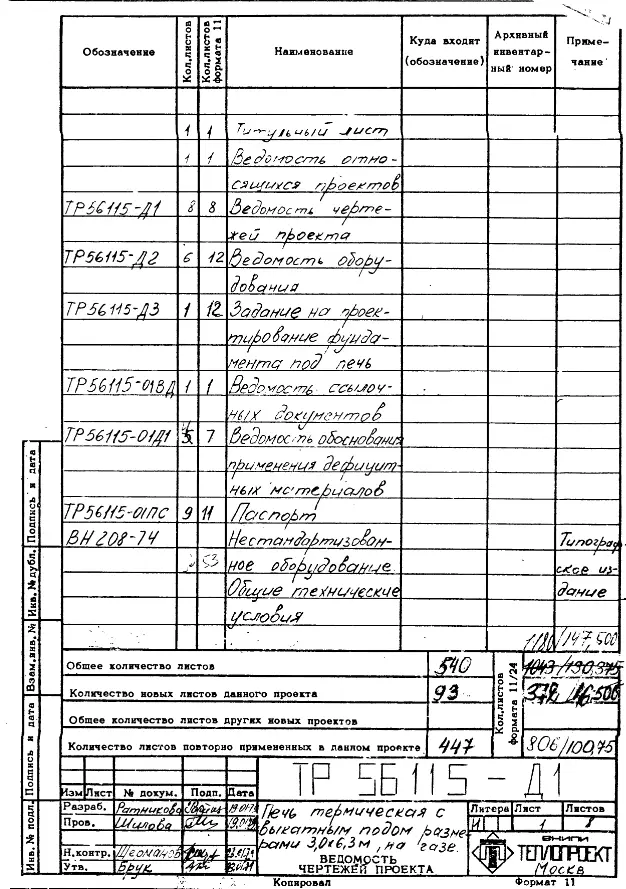 Обозначение Кол.листов Кол.листов формата 11 Наименование Куда входит (обозначение) Архивный инвентар- ный номер Приме- чание
1 1 Титульный лист
1 1 Ведомость отно-
сящихся проектов
ТР56115-Д1 8 8 Ведомость черте-
жей проекта
ТР56115-Д2 6 12 Ведомость обору-
дования
ТР56115-Д3 1 12 Задание на проек-
тирование фунда-
мента под печь
ТР56115-01ВД 1 1 Ведомость ссылоч-
ных документов
ТР56115-01Д1 5 7 Ведомость обоснования
применения дефицит-
ных материалов
ТР56115-01ПС 9 11 Паспорт
ВН208-74 Нестандартизован- Типограф
53 ное оборудование. ское из-
Общие технические дание
условия
1180/147,500
Общее количество листов 540 1043/130,375
Количество новых листов данного проекта 93
Кол.листов формата 11/24
Общее количество листов других новых проектов
Количество листов повторно примененных в данном проекте 447 806/100,75
ТР 56115-Д1
Изм Лист № докум. Подп. Дата
Разраб. Ратникова
Пров. Шилова
Н.контр.
Утв. Брук
Печь термическая с
выкатным подом разме-
рами 3,0х6,3м, на газе.
ВЕДОМОСТЬ
ЧЕРТЕЖЕЙ ПРОЕКТА
Литера Лист Листов
И 1 8
ВНИПИ
ТЕПЛОПРОЕКТ
Москва
Копировал Формат 11
Подпись и дата
Инв. № дубл.
Взам.инв. №
Подпись и дата
Инв. № подл.